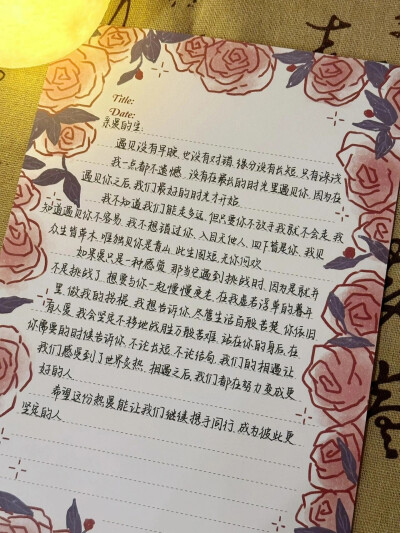 Title:
Date:
亲爱的生:
遇见没有早晚，也没有对错，缘分没有长短，只有深浅
我一点都不遗憾，没有在最长的时光里遇见你，因为在
遇见你之后，我们最好的时光才开始
我不知道我们能走多远，但只要你不放手我就不会走，我
知道遇见你不容易，我不想错过你，入目无他人，四下皆是你，我见
众生皆草木，唯独见你是青山，此生阑珊，无你何欢
如果爱只是一种感觉，那当它遇到挑战时，因为是就并
不是挑战了，想要与你一起慢慢变老，在我处名清单的暮年
里，做我的拐杖，我想告诉你，尽管生活百般苦楚，你依旧
有人爱，我会坚定不移地战胜万般苦难，站在你的身后，在
你需要的时候告诉你，不论出短，不论结局，我们的相遇让
我们感受到了世界炙热，相遇之后，我们都在努力变成更
好的人
希望这份热爱能让我们继续携手同行，成为彼此更
坚定的人